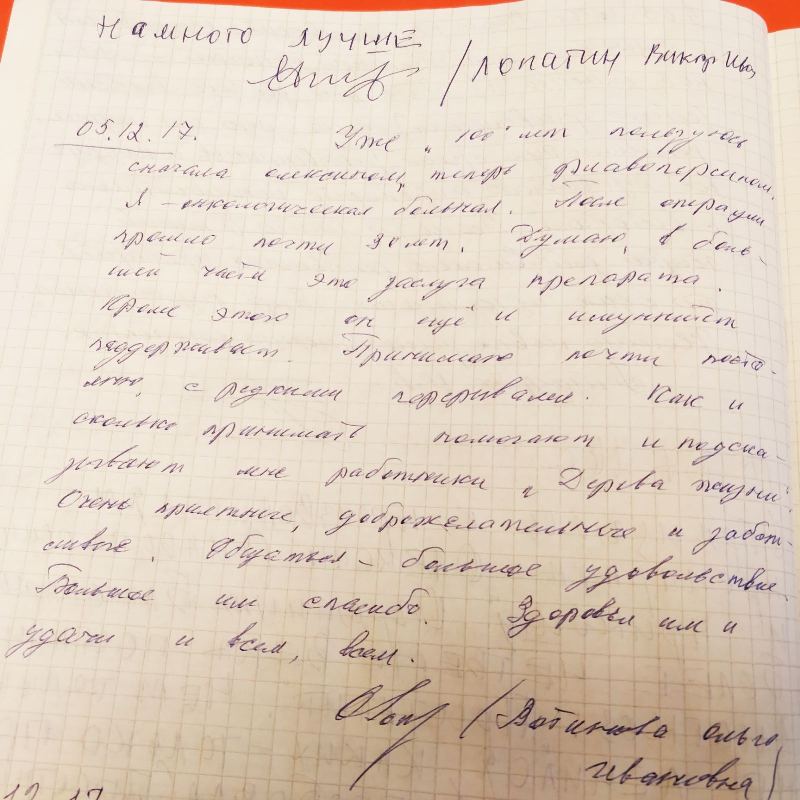 НАМНОГО ЛУЧШЕ
/ЛОПАТИН Виктор Ив
05.12.17. Уже „100" лет пользуюсь
сначала олексином, теперь флавоперсином.
Я - онкологическая больная. После операции
прошло почти 30 лет. Думаю, в боль-
шей части это заслуга препарата.
Кроме этого он ещё и иммунитет
поддерживает. Принимаю почти посто-
янно, с редкими перерывами. Как и
сколько принимать помогают и подска-
зывают мне работники „Дерева жизни".
Очень приятные, доброжелательные и забот-
ливые. Общаться - большое удовольствие.
Большое им спасибо. Здоровья им и
удачи и всем, всем.
/Вотинова Ольга
Ивановна/
12.17